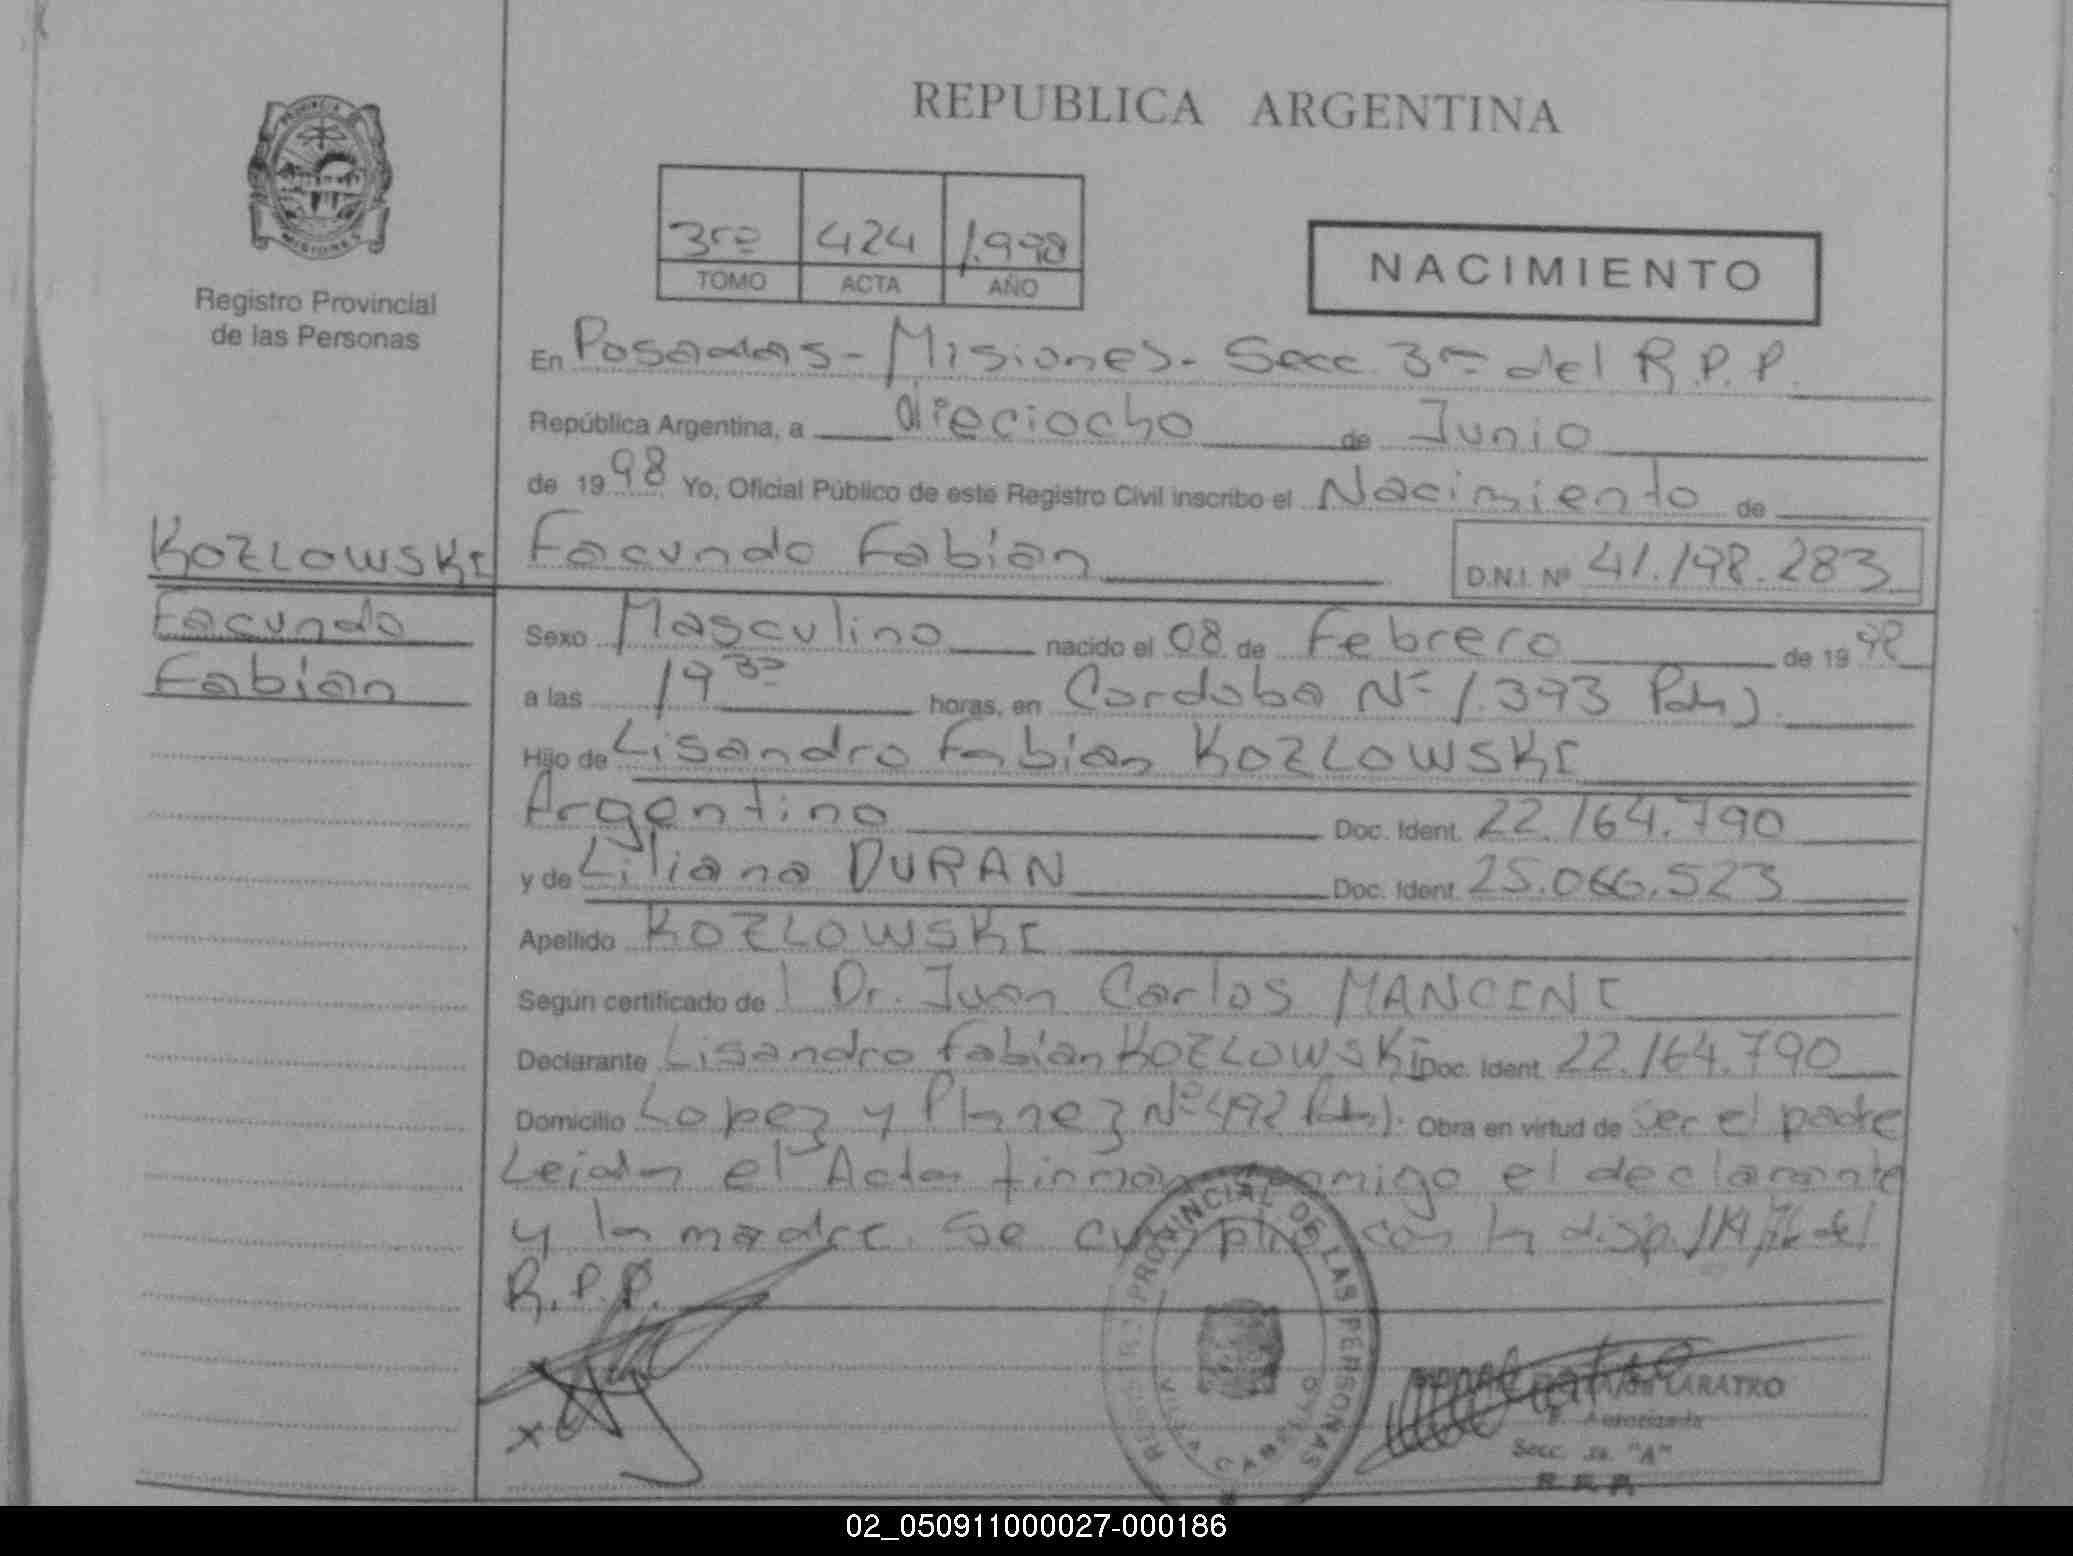 REPUBLICA ARGENTINA
PROVINCIA
MISIONES
Registro Provincial
de las Personas
3ro 424 1.998
TOMO ACTA AÑO
NACIMIENTO
En Posadas - Misiones - Secc. 3ra del R.P.P.
República Argentina, a dieciocho de Junio
de 1998 Yo, Oficial Público de este Registro Civil inscribo el Nacimiento de
KOZLOWSKI Facundo Fabian D.N.I. Nº 41.198.283
Facundo
Fabian
Sexo Masculino nacido el 08 de Febrero de 1998
a las 19 30 horas, en Cordoba Nº 1.393 Pdas
Hijo de Lisandro Fabian KOZLOWSKI
Argentino Doc. Ident. 22.164.790
y de Liliana DURAN Doc. Ident. 25.066.523
Apellido KOZLOWSKI
Según certificado de Dr. Juan Carlos MANCINI
Declarante Lisandro Fabian KOZLOWSKI Doc. Ident. 22.164.790
Domicilio Lopez y Planez Nº 492 Obra en virtud de ser el padre
Leida el Acta firman conmigo el declarante
y la madre. Se cumplio con la disp. del
R.P.P.
PROVINCIAL DE LAS PERSONAS
LARATRO
Autorizada
Secc. 3a. "A"
R.P.P.
02_050911000027-000186